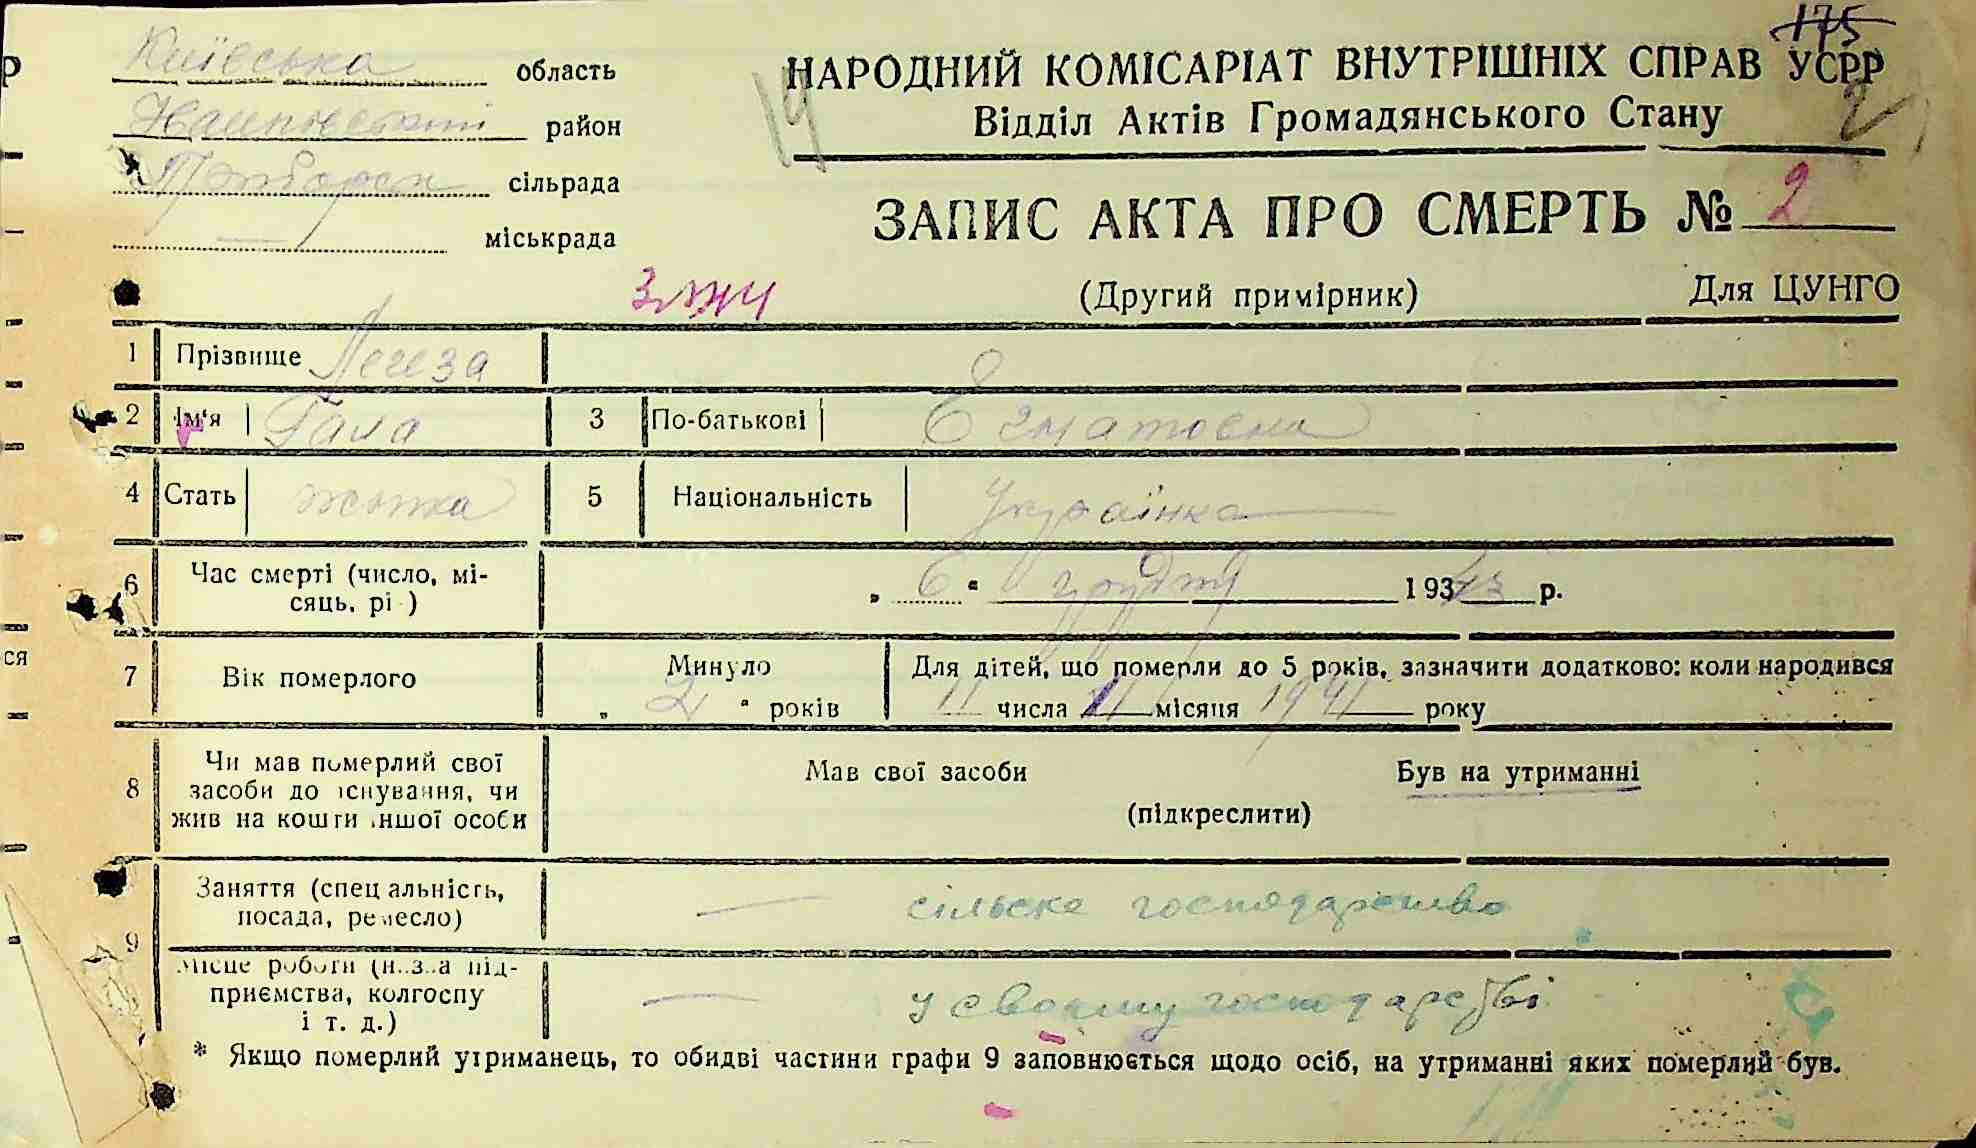 175
Київська область
НАРОДНИЙ КОМІСАРІАТ ВНУТРІШНІХ СПРАВ УСРР
район
Відділ Актів Громадянського Стану
2
сільрада
ЗАПИС АКТА ПРО СМЕРТЬ № 2
міськрада
(Другий примірник) Для ЦУНГО
1 Прізвище Легеза
2 Ім'я Гала 3 По-батькові
4 Стать жінка 5 Національність Українка
6 Час смерті (число, мі-
сяць, рі )
„ 6 “ грудня 1943 р.
7 Вік померлого
Минуло
„ 2 “ років
Для дітей, що померли до 5 років, зазначити додатково: коли народився
11 числа VI місяця 1941 року
8 Чи мав померлий свої
засоби до існування, чи
жив на кошти іншої особи
Мав свої засоби Був на утриманні
(підкреслити)
9 Заняття (спец альність,
посада, ремесло)
— сільске господарство
Місце роботи (назва під-
приємства, колгоспу
і т. д.)
— у своєму господарстві
* Якщо померлий утриманець, то обидві частини графи 9 заповнюється щодо осіб, на утриманні яких померлий був.